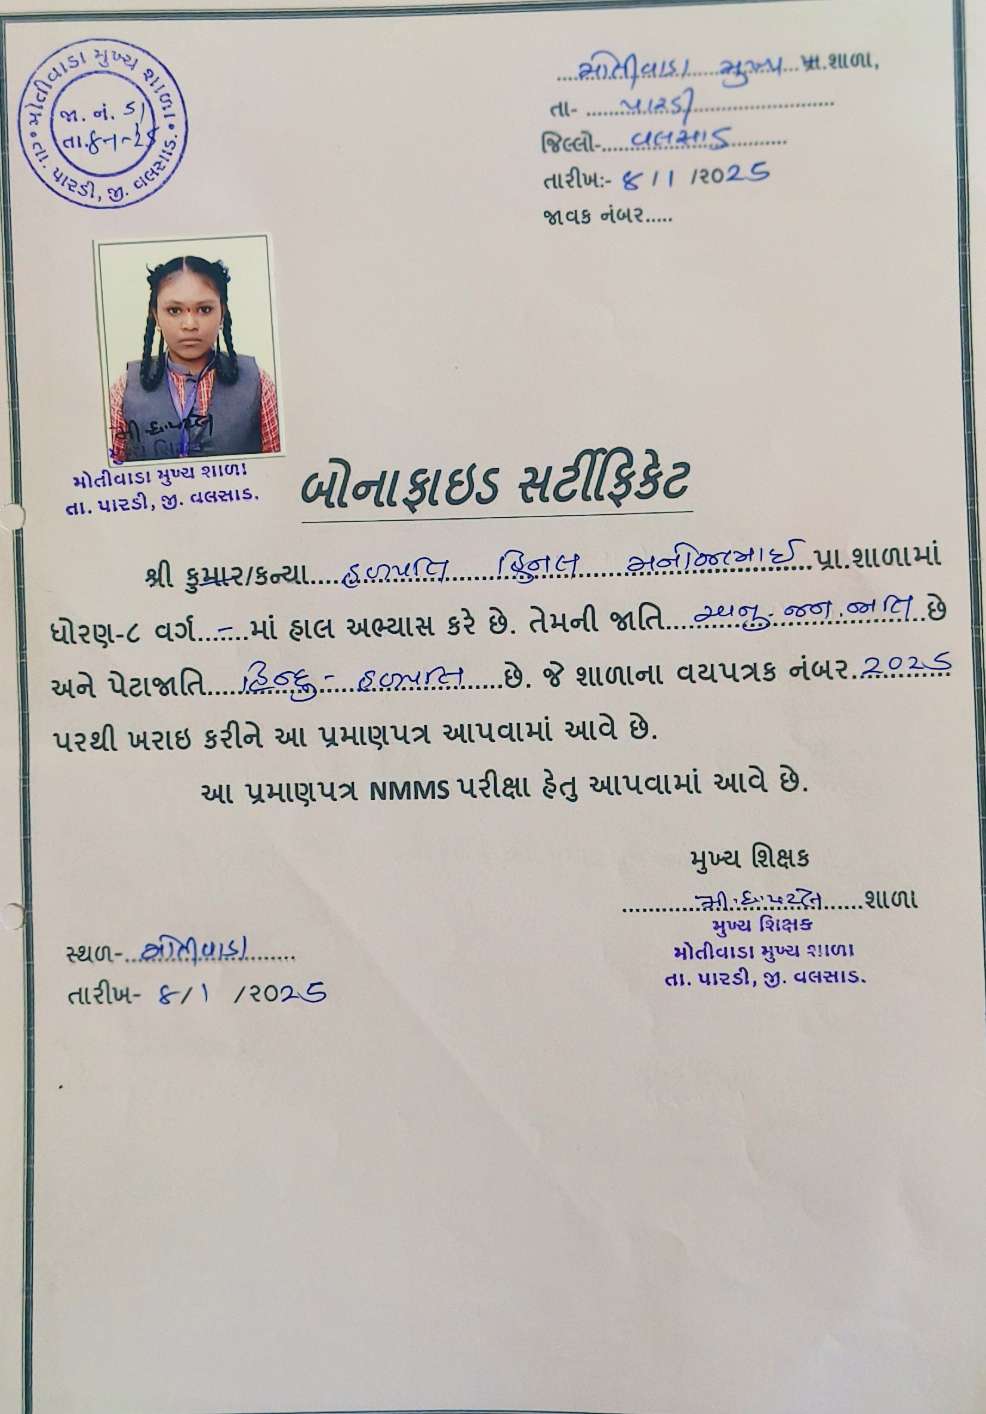 મોતીવાડા મુખ્ય શાળા
જા. નં. 51
તા. ૪-૧-૨૫
તા. પારડી, જી. વલસાડ.
મોતીવાડા મુખ્ય પ્રા.શાળા,
તા- પારડી
જિલ્લો- વલસાડ
તારીખ:- ૪/૧/૨૦૨૫
જાવક નંબર.....
મુખ્ય શિક્ષક
મોતીવાડા મુખ્ય શાળા
તા. પારડી, જી. વલસાડ.
બોનાફાઇડ સર્ટીફિકેટ
શ્રી કુમાર/કન્યા....હળપતિ હિનલ મનોજભાઈ પ્રા.શાળામાં
ધોરણ-૮ વર્ગ...-...માં હાલ અભ્યાસ કરે છે. તેમની જાતિ....અનુ.જન.જાતિ છે
અને પેટાજાતિ....હિન્દુ - હળપતિ....છે. જે શાળાના વયપત્રક નંબર.૨૦૨૬
પરથી ખરાઇ કરીને આ પ્રમાણપત્ર આપવામાં આવે છે.
આ પ્રમાણપત્ર NMMS પરીક્ષા હેતુ આપવામાં આવે છે.
મુખ્ય શિક્ષક
શાળા
મુખ્ય શિક્ષક
મોતીવાડા મુખ્ય શાળા
તા. પારડી, જી. વલસાડ.
સ્થળ-..મોતીવાડા........
તારીખ- ૪/૧ /૨૦૨૫